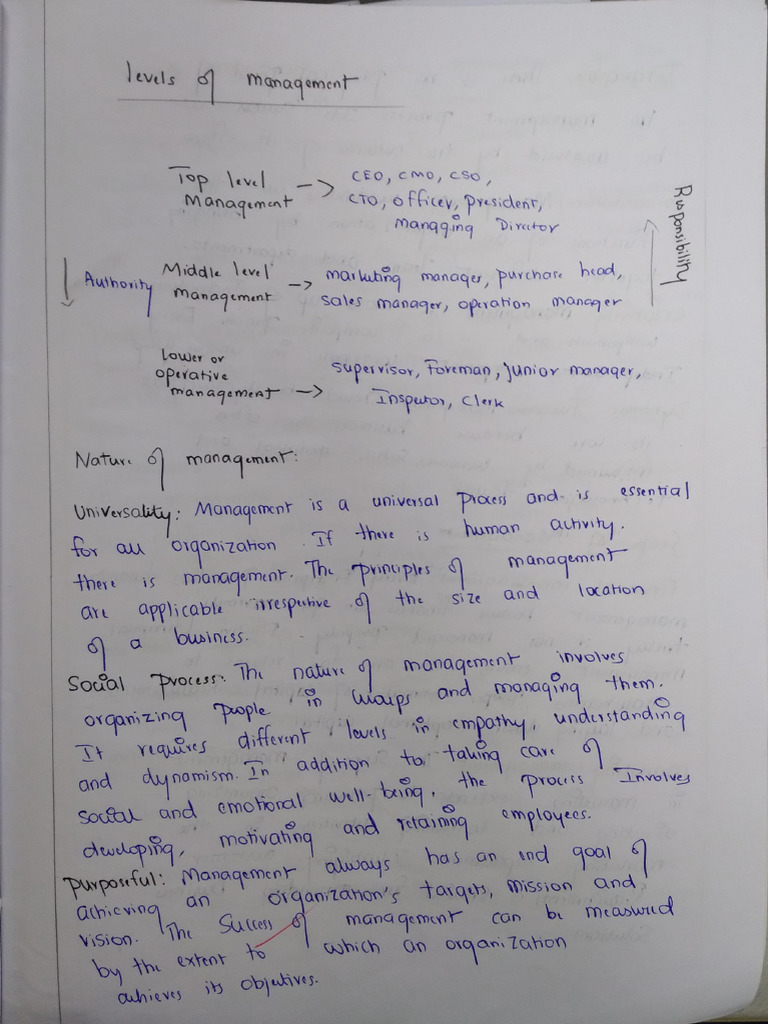 levels of management
Top level
Management → CEO, CMO, CSO,
CTO, officer, president,
managging Director
Responsibility
Authority
Middle level
management → marketing manager, purchase head,
sales manager, operation manager
Lower or
operative
management → supervisor, Foreman, junior manager,
Inspector, Clerk
Nature of management:
Universality: Management is a universal process and is essential
for all organization. If there is human activity.
there is management. The principles of management
are applicable irrespective of the size and location
of a business.
Social process: The nature of management involves
organizing people in Groups and managing them.
It requires different levels in empathy, understanding
and dynamism. In addition to taking care of
social and emotional well-being, the process Involves
developing, motivating and retaining employees.
Purposeful: Management always has an end goal of
achieving an organization's targets, mission and
vision. The Success of management can be measured
by the extent to which an organization
achieves its objectives.